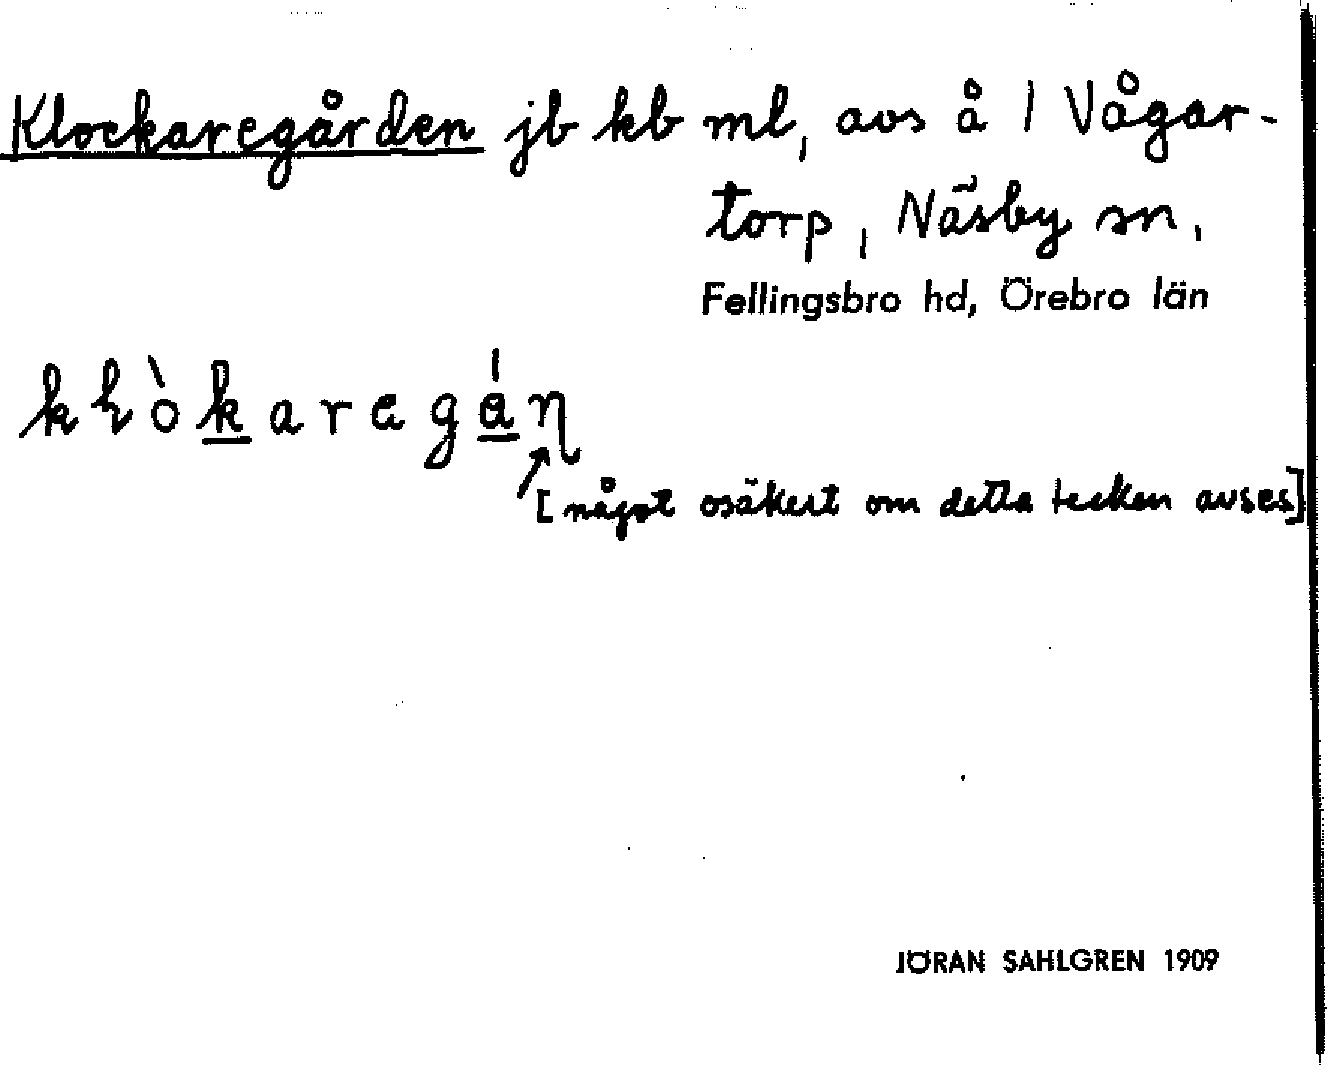 Klockaregården jb kb ml, avs å 1 Vågar-
torp, Näsby sn,
Fellingsbro hd, Örebro län
khòkaregán
[något osäkert om detta tecken avses]
JÖRAN SAHLGREN 1909